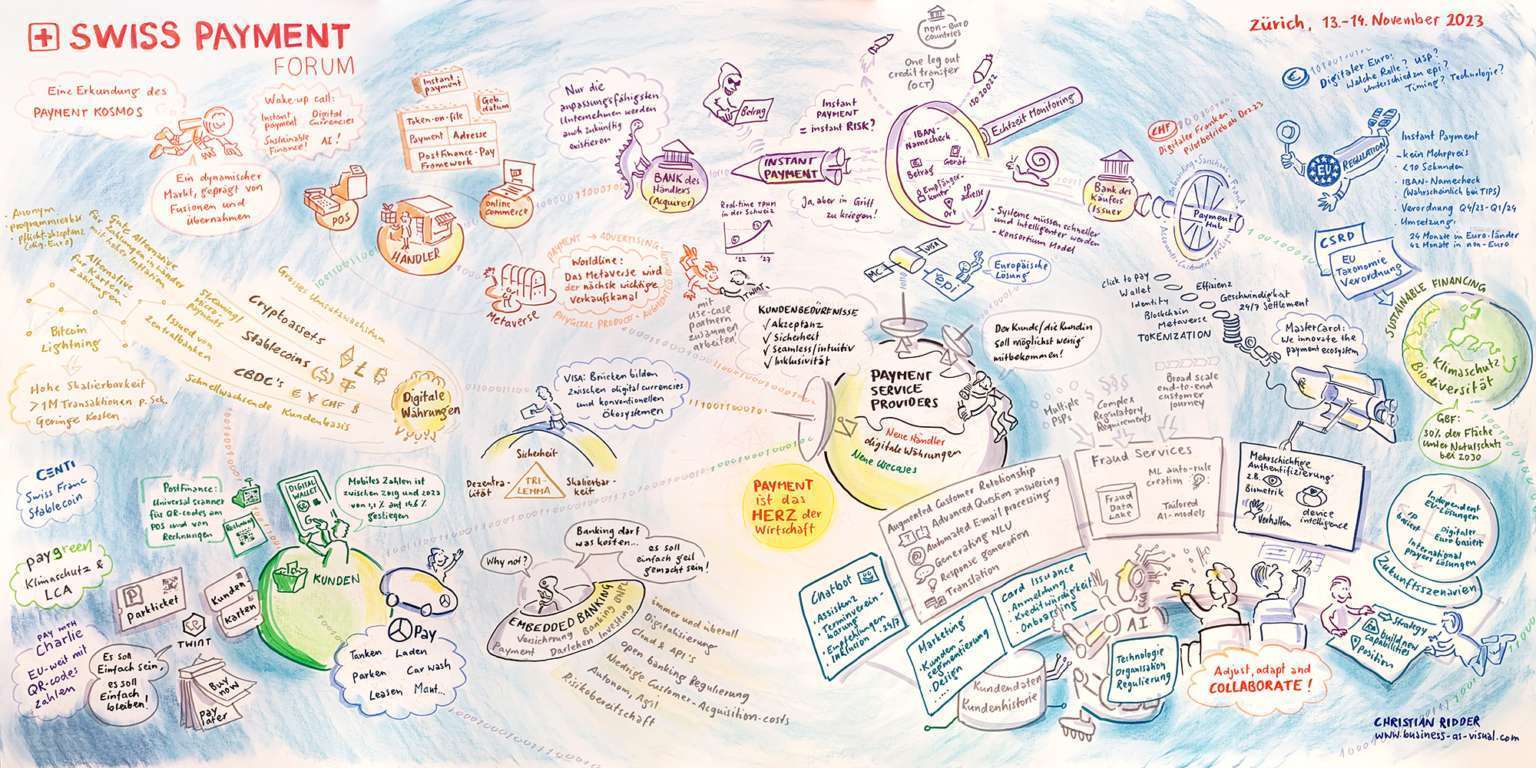 SWISS PAYMENT
FORUM
Zürich, 13.-14. November 2023
Eine Erkundung des
PAYMENT KOSMOS
Wake-up call:
Instant payment
Digital Currencies
Sustainable Finance!
AI!
Ein dynamischer
Markt, geprägt von
Fusionen und
übernahmen
Instant payment
Geb. datum
Token-on-file
Payment
Adresse
PostFinance-Pay
Framework
POS
HÄNDLER
online
commerce
Nur die
anpassungsfähigsten
Unternehmen werden
auch zukünftig
existieren
BANK des
Händlers
(Acquirer)
Betrag
INSTANT
PAYMENT
Instant
PAYMENT
= instant RISK?
Ja, aber in Griff
zu kriegen!
non-euro
countries
One leg out
credit transfer
(OCT)
ISO 20022
Echtzeit Monitoring
IBAN-
Namecheck
Betrag
Gerät
Empfänger-
konto
IP
adresse
Ort
- Systeme müssen schneller
und intelligenter werden
- Konsortium Model
Bank des
Käufers
(Issuer)
Payment
Hub
CHF
Digitaler Franken
Pilotbetrieb ab Dez 23
Digitaler Euro:
Welche Rolle? USP?
Unterschied zu epi?
Timing?
Technologie?
EU
REGULATION
Instant Payment
- kein Mehrpreis
<10 Sekunden
IBAN-Namecheck
(Wahrscheinlich bei TIPS)
- Verordnung Q4/23-Q1/24
- Umsetzung:
24 Monate in Euro-länder
42 Monate in non-Euro
CSRD
EU
Taxonomie
Verordnung
SUSTAINABLE FINANCING
Klimaschutz
Biodiversität
GBF:
30% der Fläche
unter Naturschutz
bei 2030
PAYMENT → ADVERTISING
Worldline:
Das Metaverse wird
der nächste wichtige
Verkaufskanal
Metaverse
Real-time TPUN
in der Schweiz
'22 '23
TWINT
mit
use-case
partnern
zusammen
arbeiten!
MC
VISA
epi
Europäische
Lösung
KUNDENBEDÜRFNISSE
✓ Akzeptanz
✓ Sicherheit
✓ Seamless/intuitiv
✓ Inklusivität
Der Kunde/die Kundin
soll möglichst wenig
mitbekommen!
PAYMENT
SERVICE
PROVIDERS
Neue Händler
digitale Währungen
Neue Usecases
Click to pay
Wallet
Identity
Blockchain
Metaverse
TOKENIZATION
Effizienz
Geschwindigkeit
24/7 Settlement
MasterCard:
We innovate the
payment ecosystem
- Anonym
- programmierbar
- Pflichtakzeptanz
(dig. Euro)
für Gute Alternative
- Alternative
für Karten-
zahlungen
Bitcoin
Lightning
Hohe Skalierbarkeit
>1M Transaktionen p. Sek.
Geringe Kosten
Streaming/
micro-
payments
Issued von
Zentralbanken
Grosses Umsatzwachstum
Cryptoassets
Stablecoins
CBDC's
€ ¥ CHF $
Schnellwachsende Kundenbasis
Digitale
Währungen
VISA: Brücken bilden
zwischen digital currencies
und konventionellen
Ökosystemen
Sicherheit
Dezentra-
lität
TRI-
LEMMA
Skalierbar-
keit
PAYMENT
ist das
HERZ der
Wirtschaft
CENTI
Swiss Franc
Stablecoin
paygreen
Klimaschutz &
LCA
PAY WITH
Charlie
EU-weit mit
QR-codes
zahlen
PostFinance:
Universal scanner
für QR-codes am
POS und von
Rechnungen
Rechnung
DIGITAL
WALLET
Mobiles Zahlen ist
zwischen 2019 und 2023
gestiegen
KUNDEN
Parkticket
Kunden
karten
TWINT
Es soll
Einfach sein,
es soll
Einfach
bleiben!
Buy
now
Pay
later
Pay
Tanken Laden
Parken Car wash
Leasen Maut...
Why not?
Banking darf
was kosten...
es soll
einfach geil
gemacht sein!
EMBEDDED BANKING
Versicherung Banking BNPL
Payment Darlehen Investing
immer und überall
Digitalisierung
Cloud & API's
open banking Regulierung
Niedrige Customer-Acquisition-costs
Autonom, Agil
Risikobereitschaft
Multiple
PSPs
Complex
Regulatory
Requirements
Broad scale
end-to-end
customer
journey
Augmented Customer Relationship
Advanced Question answering
Automated Email processing
Generating NLU
Response generation
Translation
Fraud Services
Fraud
Data
Lake
ML auto-rule
creation
Tailored
AI-models
Mehrschichtige
Authentifizierung
z.B.
Biometrik
Verhalten
device
intelligence
Independent
EU-Lösungen
IP
basiert
Digitaler
Euro basiert
International
players Lösungen
Zukunftsszenarien
Chatbot
- Assistenz
- Terminverein-
barung
- Empfehlungen
- Inklusion
24/7
Marketing
- Kunden
segmentierung
- Design
Card Issuance
- Anmeldung
- Kreditwürdigkeit
- Onboarding
Kundendaten
Kundenhistorie
AI
Technologie
Organisation
Regulierung
Adjust, adapt and
COLLABORATE!
Strategy
build new
capabilities
Position
CHRISTIAN RIDDER
www.business-as-visual.com